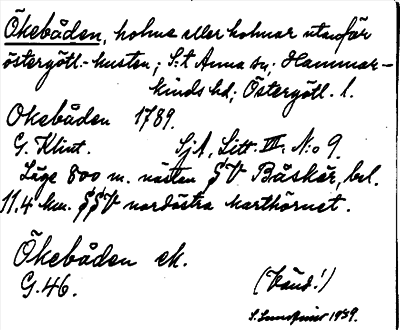 Ökebåden, holme eller holmar utanför
östergötl.-kusten; S:t Anna sn; Hammar-
kinds hd; Östergötl. l.
Okebåden 1789.
G. Klint. Sjk, Litt. III. N:o 9.
Läge 800 m. nästen SV Båskär, bel.
11.4 km. SSV nordöstra karthörnet.
Ökebåden ek.
G.46. (Vänd!)
1939.